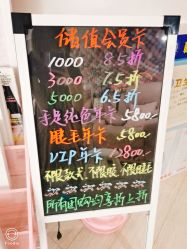 储值会员卡
1000 8.5折
3000 7.5折
5000 6.5折
手足纯色年卡5800/-
睫毛年卡 5800/-
VIP年卡 12800/-
不限款式 不限胶 不限睫毛
所有团购均享折上折
Foodie